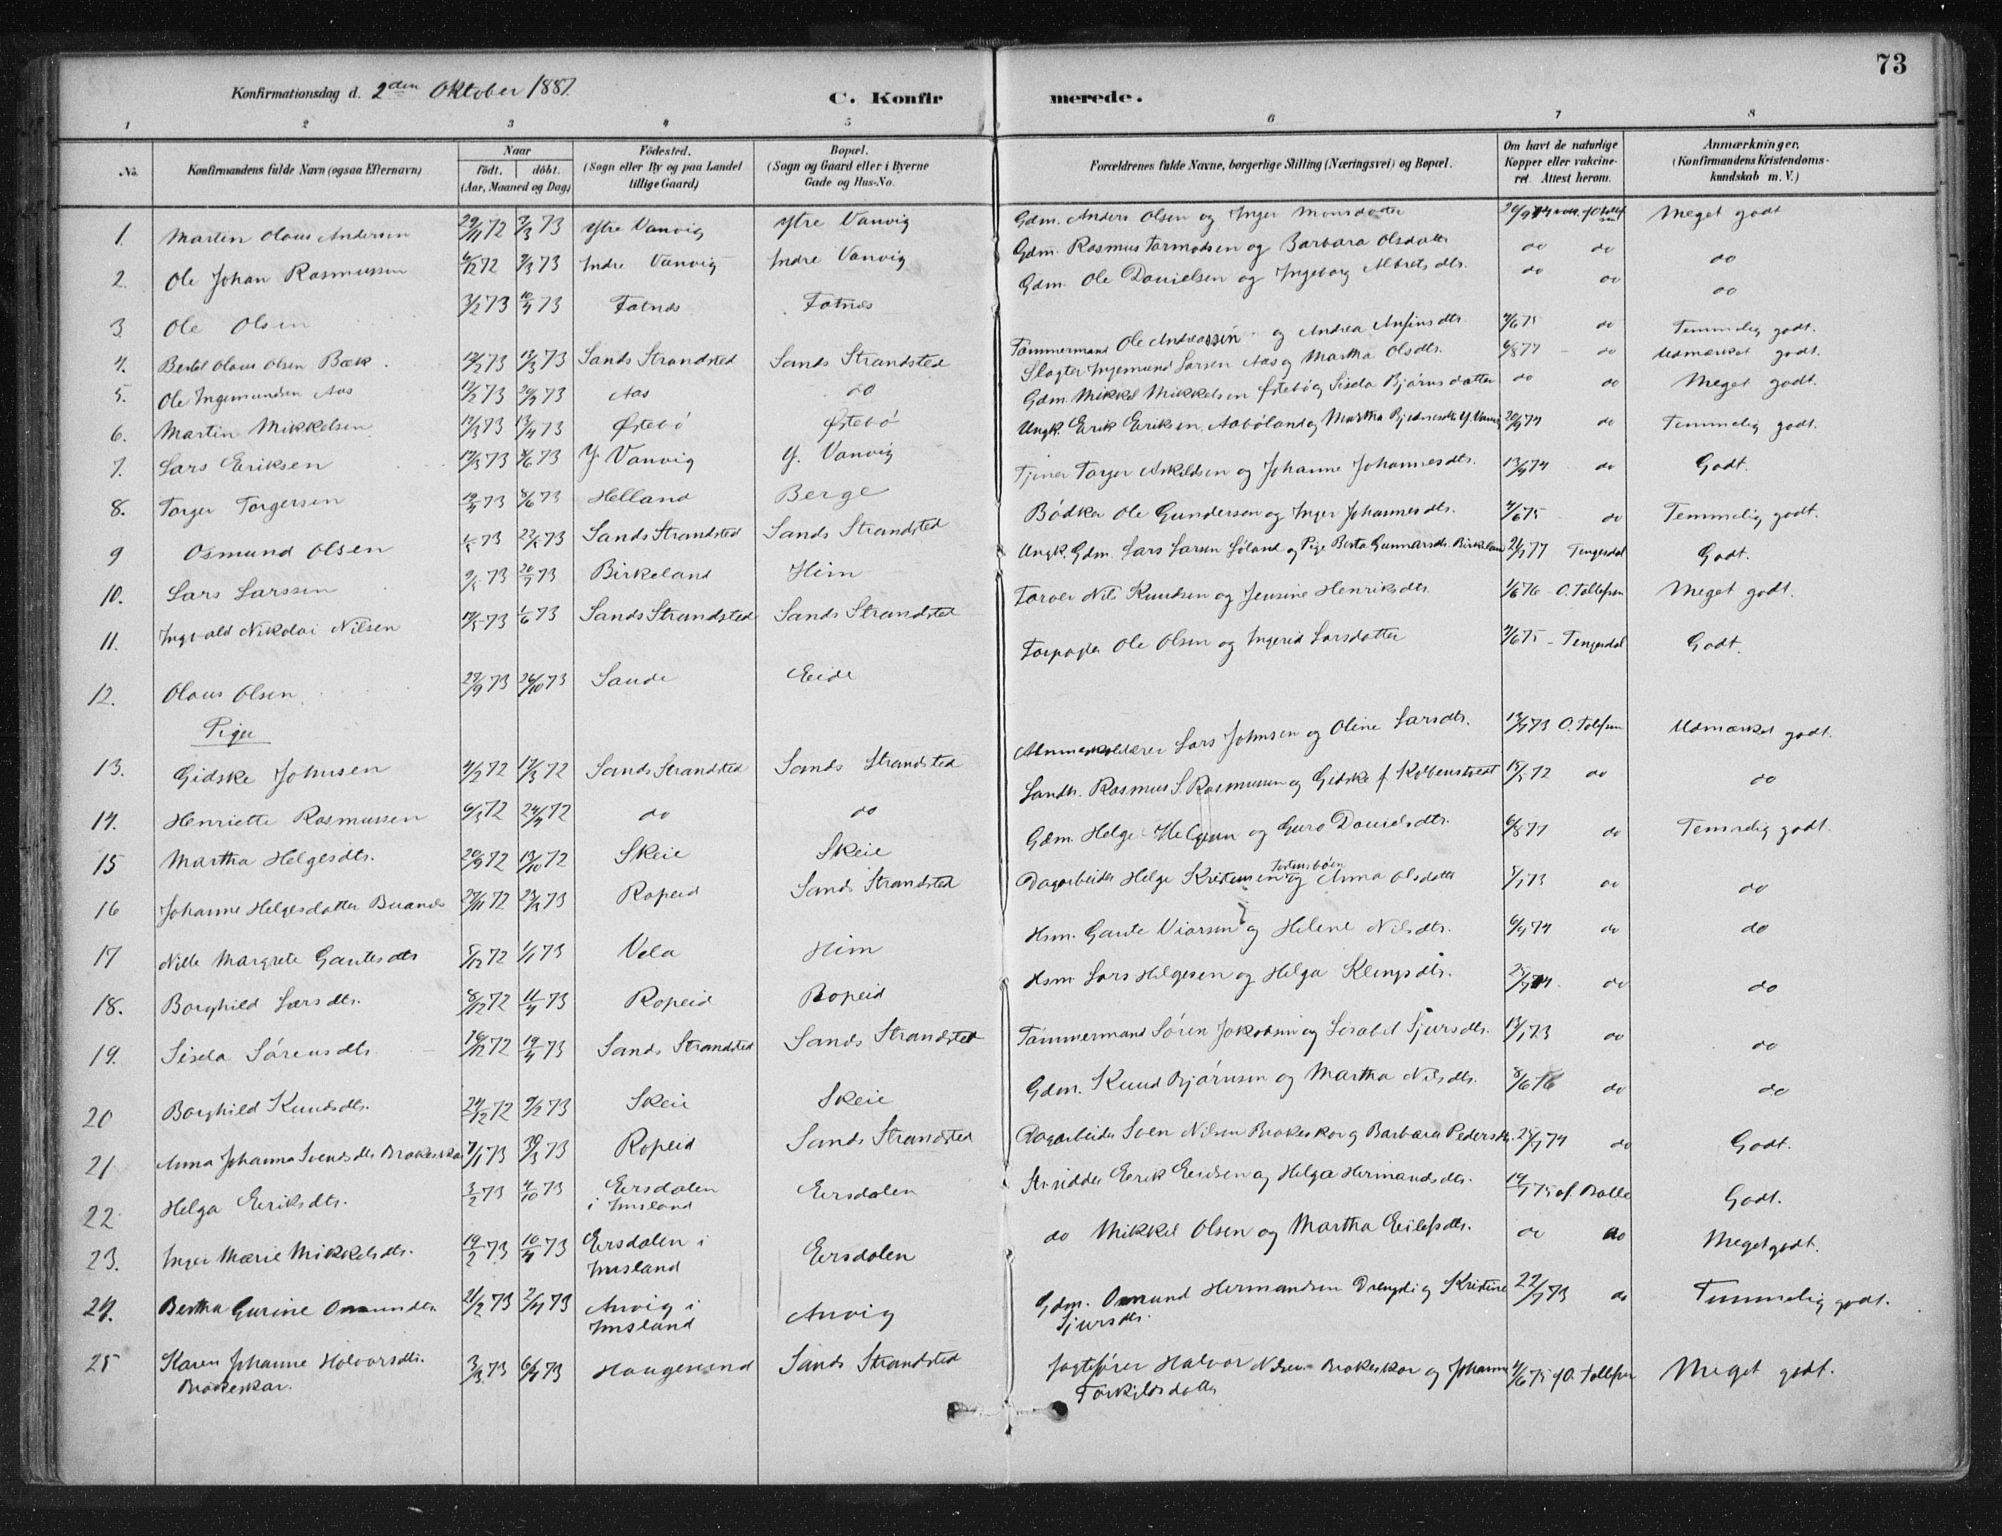 73
Konfirmationsdag d. 2den Oktober 1887.
C. Konfirmerede.
1 2 3 4 5 6 7 8
No. Konfirmandens fulde Navn (ogsaa Efternavn) Naar födt. döbt. (Aar, Maaned og Dag) Födested. (Sogn eller By og paa Landet tillige Gaard) Bopæl. (Sogn og Gaard eller i Byerne Gade og Hus-No. Forældrenes fulde Navne, borgerlige Stilling (Næringsvei) og Bopæl. Om havt de naturlige Kopper eller vakcineret. Attest herom. Anmærkninger. (Konfirmandens Kristendomskundskab m. V.)
1. Martin Olaus Andersen 29/11 72 2/3 73 Ytre Vanvig Ytre Vanvig Gdm. Anders Olsen og Inger Monsdatter Meget godt
2. Ole Johan Rasmussen 6/12 72 2/3 73 Indre Vanvig Indre Vanvig Gdm. Rasmus Tormodsen og Barbara Olsdatter do do do
3 Ole Olsen 3/2 73 10/4 73 Fatnes Fatnes Gdm. Ole Danielsen og Ingeborg Albretsdtr. do do do
4. Bertel Olaus Olsen Bæk 12/2 73 13/3 73 Sands Strandsted Sands Strandsted Tømmermand Ole Andreassen og Andrea Anfinsdtr. 4/6 75 do Temmelig godt.
5. Ole Ingemundsen Aas 12/2 73 20/3 73 Aas do Slagter Ingemund Larsen Aas og Martha Olsdtr. 6/8 77 do Udmærket godt.
6. Martin Mikkelsen 12/3 73 13/4 73 Østebö Østebö Gdm. Mikkel Mikkelsen Østebö og Siselia Bjørnsdatter do do Meget godt.
7. Lars Eriksen 19/3 73 2/6 73 Y. Vanvig Y. Vanvig Ungk. Erik Eriksen Aaböland og Martha Bjørnesdtr Y. Vanvig 20/9 74 do Temmelig godt.
8. Torger Torgersen 19/4 73 8/6 73 Helland Berge Tjener Torger Askildsen og Johanne Johannesdtr. 13/9 74 do Godt.
9 Osmund Olsen 1/5 73 22/5 73 Sands Strandsted Sands Strandsted Bødker Ole Gundersen og Inger Johannesdtr. 4/6 75 do Temmelig godt.
10. Lars Larssen 9/5 73 20/7 73 Birkeland Him Ungk. Gdm. Lars Larsen Löland og Pige Berta Gunnarsdtr. Birkeland 21/7 77 Tengesdal Godt.
11. Ingvald Nikolai Nilsen 17/5 73 1/6 73 Sands Strandsted Sands Strandsted Farver Nils Knudsen og Jensine Henriksdtr. 1/6 76 O. Tollefsen Meget godt.
12. Olaus Olsen 27/9 73 26/10 73 Sande Eide Forpagter Ole Olsen og Ingerid Larsdatter 4/6 75 - Tengesdal Godt.
Piger
13. Gidske Johnsen 4/2 72 17/3 72 Sands Strandsted Sands Strandsted Almueskolelærer Lars Johnsen og Oline Larsdtr. 13/7 73 O. Tollefsen Udmærket godt.
14. Henriette Rasmussen 6/3 72 24/4 72 do do Landh. Rasmus S. Rasmussen og Gidske f. Kolbenstvedt 15/5 72 do do
15 Martha Helgesdtr. 20/9 72 13/10 72 Skeie Skeie Gdm. Helge Helgesen og Guro Danielsdtr. 6/8 77 do Temmelig godt.
16 Johanne Helgesdatter Buanes 27/11 72 23/3 73 Ropeid Sands Strandsted Dagarbeider Helge Kristensen og Anna Olsdatter 5/1 73 do do
17 Nille Margrete Gautesdtr 5/12 72 1/1 73 Vela Him Hsm. Gaute Viarsen og Helene Nilsdtr. 6/9 74 do do
18. Borghild Larsdtr. 8/12 72 11/4 73 Ropeid Ropeid Hsm. Lars Helgesen og Helga Klengsdtr. 25/7 74 do do
19. Sisela Sørensdtr. 16/12 72 19/4 73 Sands Strandsted Sands Strandsted Tømmermand Søren Jakobsen og Lisabet Sjursdtr. 13/1 73 do do
20 Borghild Knudsdtr. 24/12 72 9/2 73 Skeie Skeie Gdm. Knud Bjørnsen og Martha Nilsdtr. 8/6 76 do do
21. Anna Johanna Svendsdtr Brakeskar 7/1 73 30/3 73 Ropeid Sands Strandsted Dagarbeider Sven Nilsen Brakeskar og Barbara Pedersdtr. 25/7 74 do Godt.
22. Helga Eeriksdtr. 3/2 73 4/10 73 Eersdalen i Imsland Eersdalen Eerik Eeriksen og Helga Hermandsdtr. 14/7 75 Godt.
23. Inger Marie Mikkelsdtr. 19/2 73 10/4 73 Eersdalen i Imsland Eersdalen do Mikkel Olsen og Martha Eeilefsdtr. do do Meget godt.
24. Bertha Gurine Osmundsdtr 21/2 73 2/4 73 Anvig i Imsland Anvig Gdm. Osmund Hermandsen og Kristine Sjursdtr. 22/7 73 do Temmelig godt.
25 Karen Johanne Halvorsdtr. Brakeskar. 3/3 73 6/4 73 Haugesund Sands Strandsted Jagtfører Halvor Nilsen Brakeskar og Johanne Torkildsdatter 4/6 75 af O. Tollefsen Meget godt.